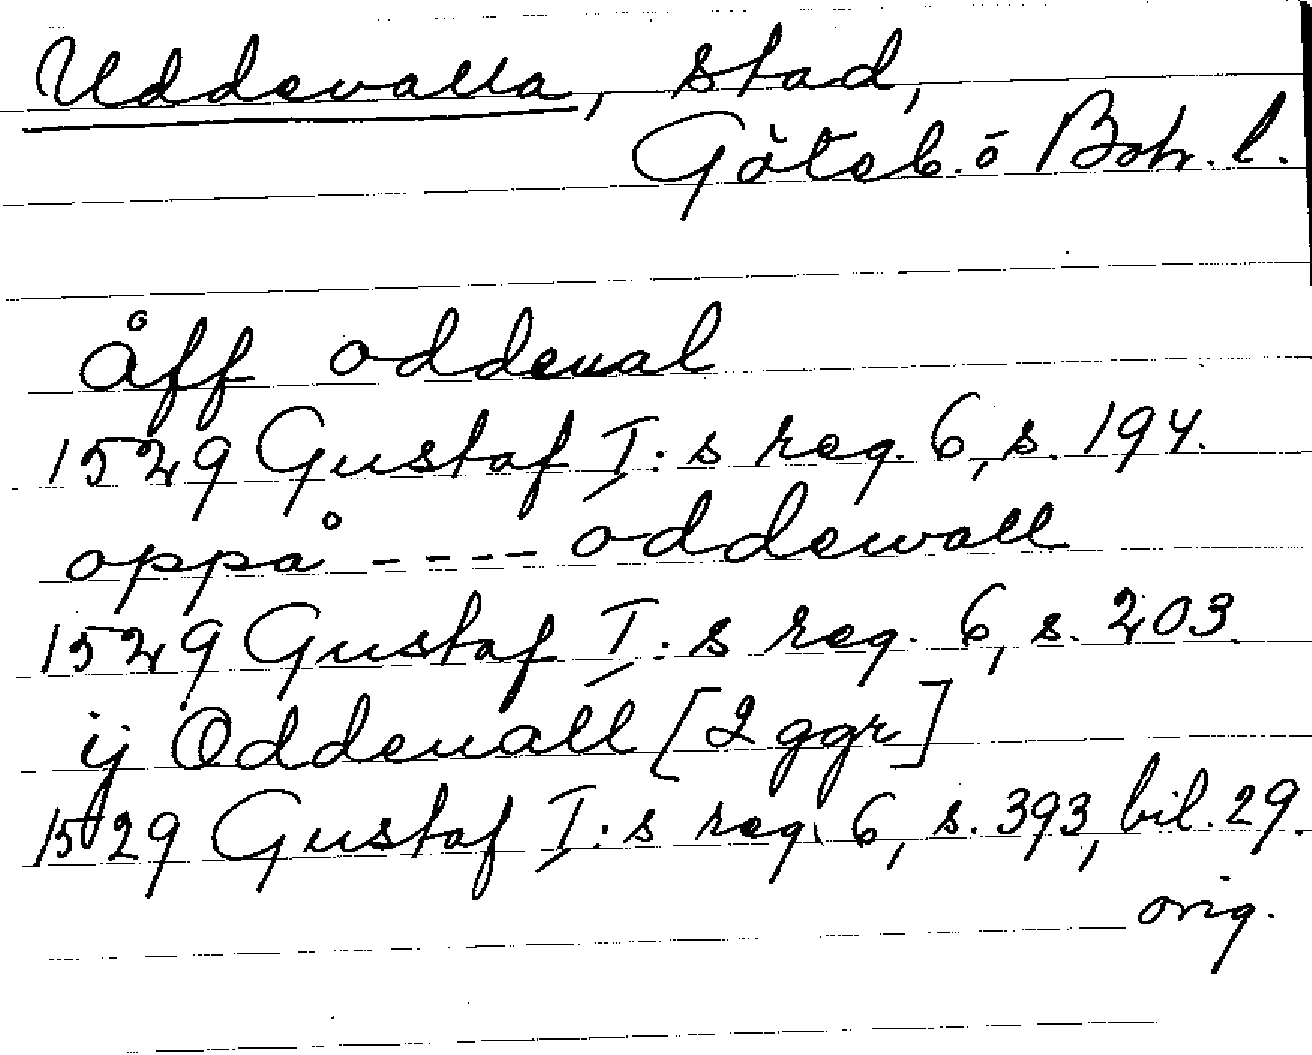 Uddevalla, stad,
Göteb. o Boh. l.
åff oddeual
1529 Gustaf I:s reg. 6, s. 194.
oppå ---- oddewall
1529 Gustaf I:s reg. 6, s. 203.
ij Oddeuall [2 ggr]
1529 Gustaf I:s reg. 6, s. 393, bil. 29.
orig.